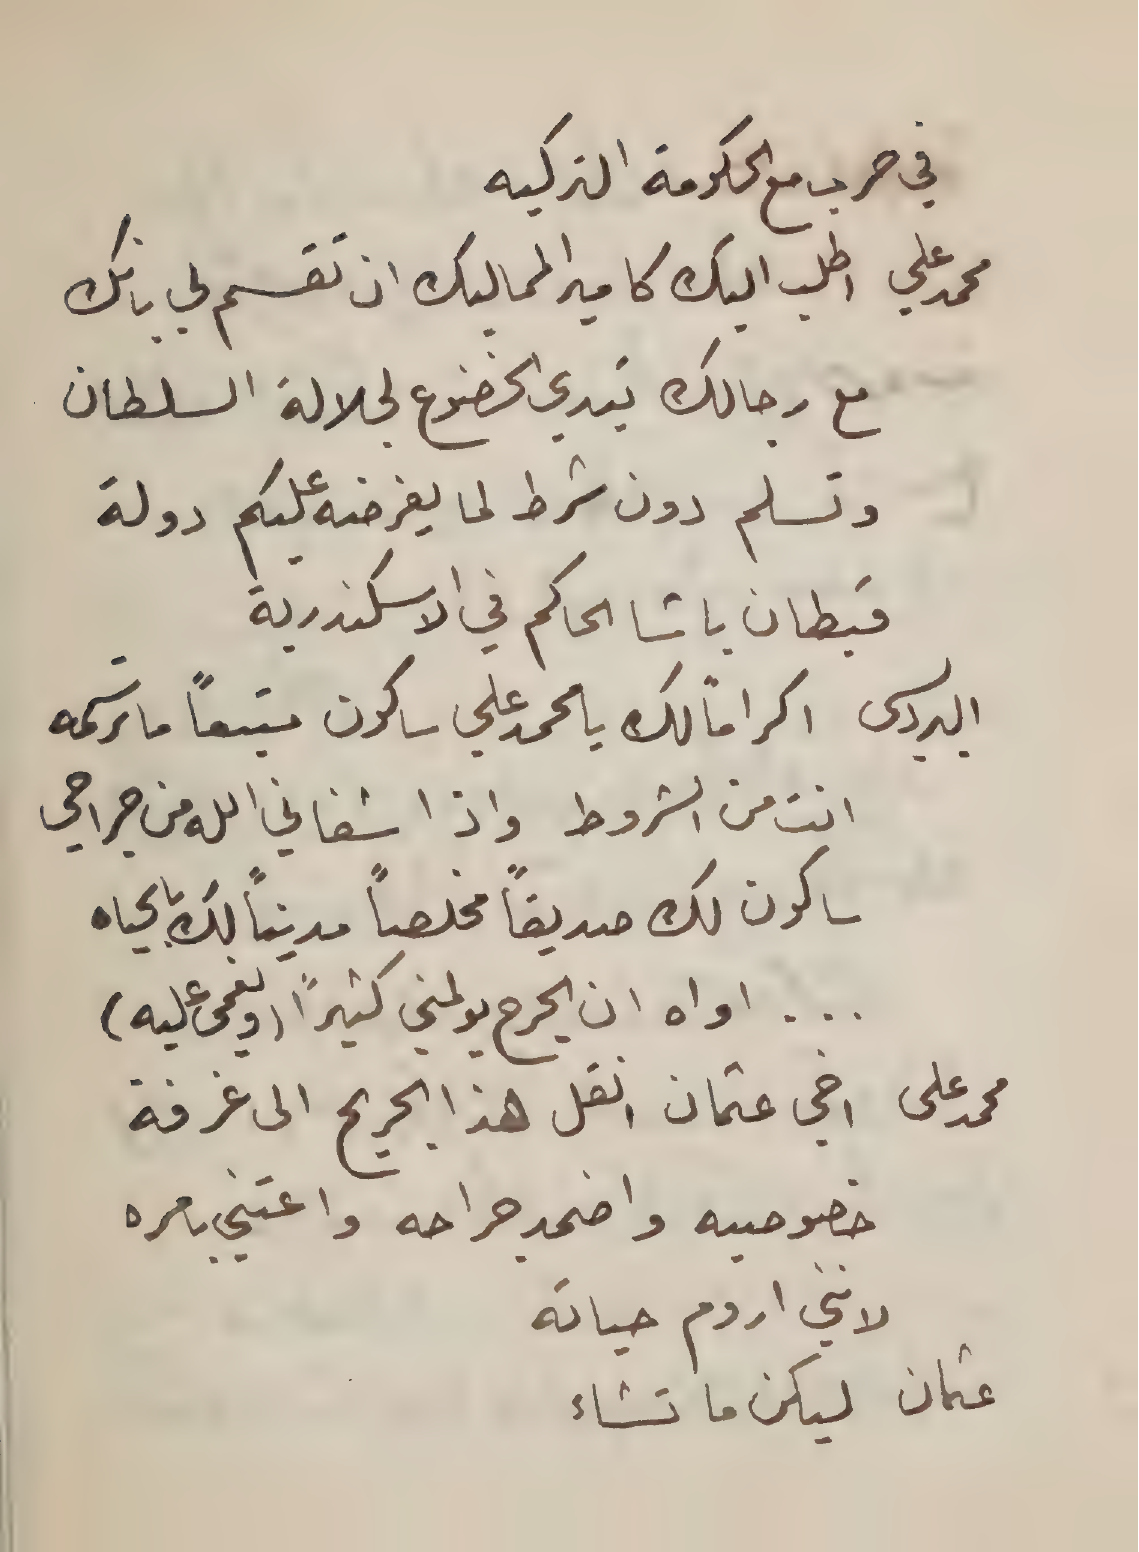 في حرب مع الحكومة التركيه
محمد علي اطلب اليك كامير المماليك ان تقسم لي بانك
مع رجالك تبدي الخضوع لجلالة السلطان
وتسلم دون شرط لما يفرضه عليكم دولة
قبطان باشا الحاكم في الاسكندرية
البرديسى اكراماً لك يا محمد علي ساكون متبعاً ما ترسمه
انت من الشروط واذا شفاني الله من جراحي
ساكون لك صديقاً مخلصاً مديناً لك بالحياه
... اواه ان الجرح يولمني كثيراً (ويغمى عليه)
محمد على اخي عثمان انقل هذا الجريح الى غرفة
خصوصيه واضمد جراحه واعتني بامره
لانني اروم حياته
عثمان ليكن ما تشاء